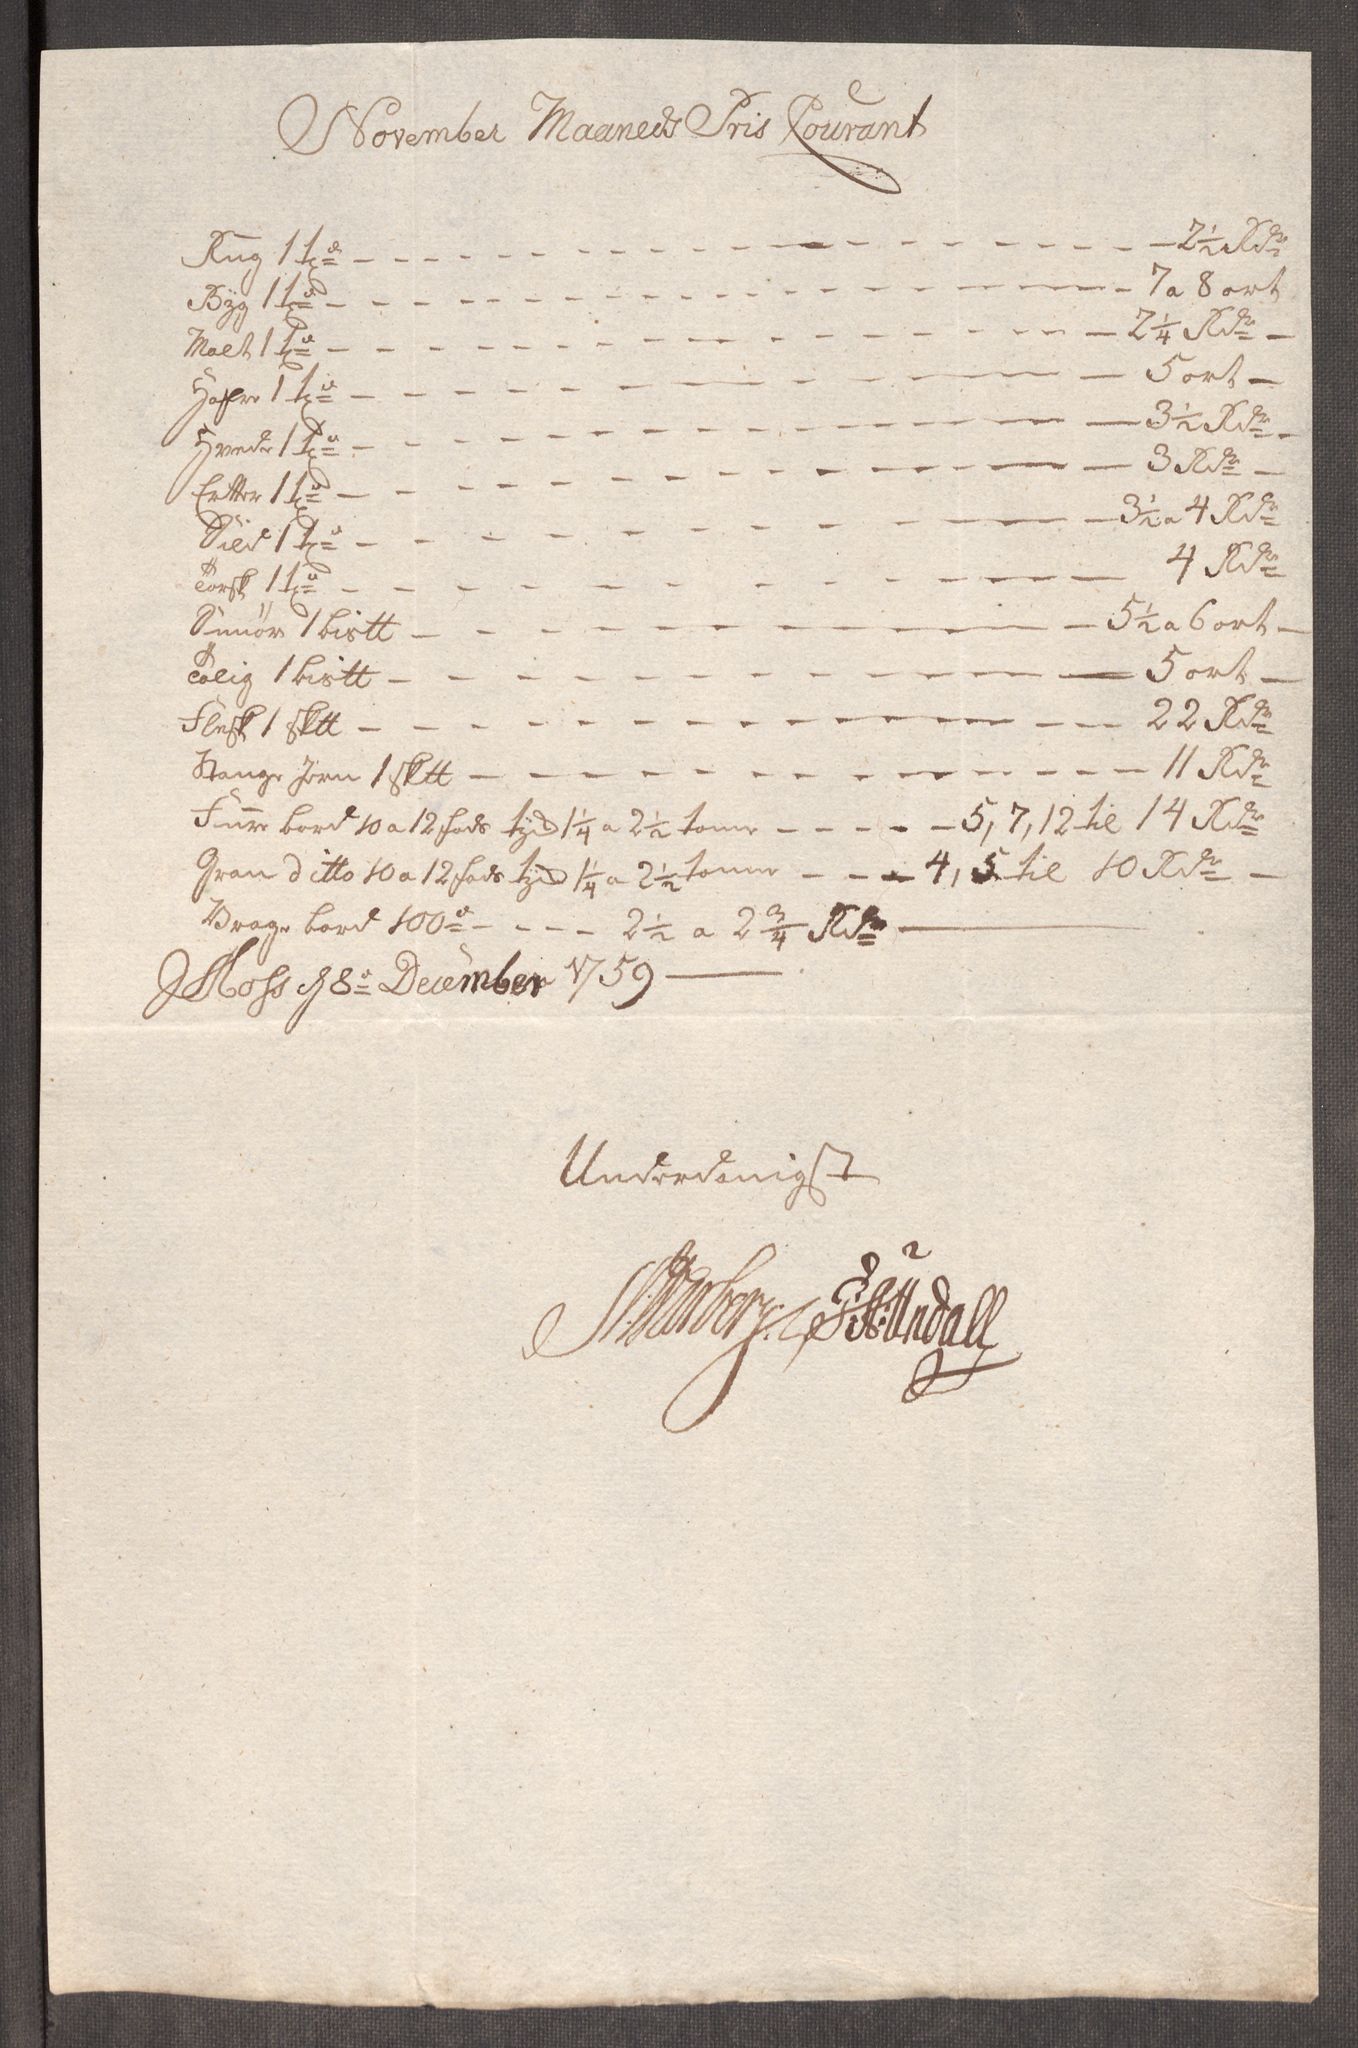 November Maaneds Pris Courant
Rug 1 tde - 2½ Rdr
Byg 1 tde - 7 a 8 ort
Malt 1 tde - 2¼ Rdr -
Hafre 1 tde - 5 ort -
Hvede 1 tde - 3½ Rdr -
Ertter 1 tde - 3 Rdr -
Sild 1 tde - 3½ a 4 Rdr
Torsk 1 tde - 4 Rdr
Smör 1 bistt - 5½ a 6 ort -
Talig 1 bistt - 5 ort -
Flesk 1 sktt - 22 Rdr
Stange Jern 1 sktt - 11 Rdr
Furre bord 10 a 12 fods tyk 1¼ a 2½ tome - 5, 7, 12 til 14 Rdr
Gran ditto 10 a 12 fods tyk 1¼ a 2½ tome - 4, 5 til 10 Rdr -
Vrage bord 100de - 2½ a 2¾ Rdr
Moss d 8de December 1759
Underdanigst
Undall